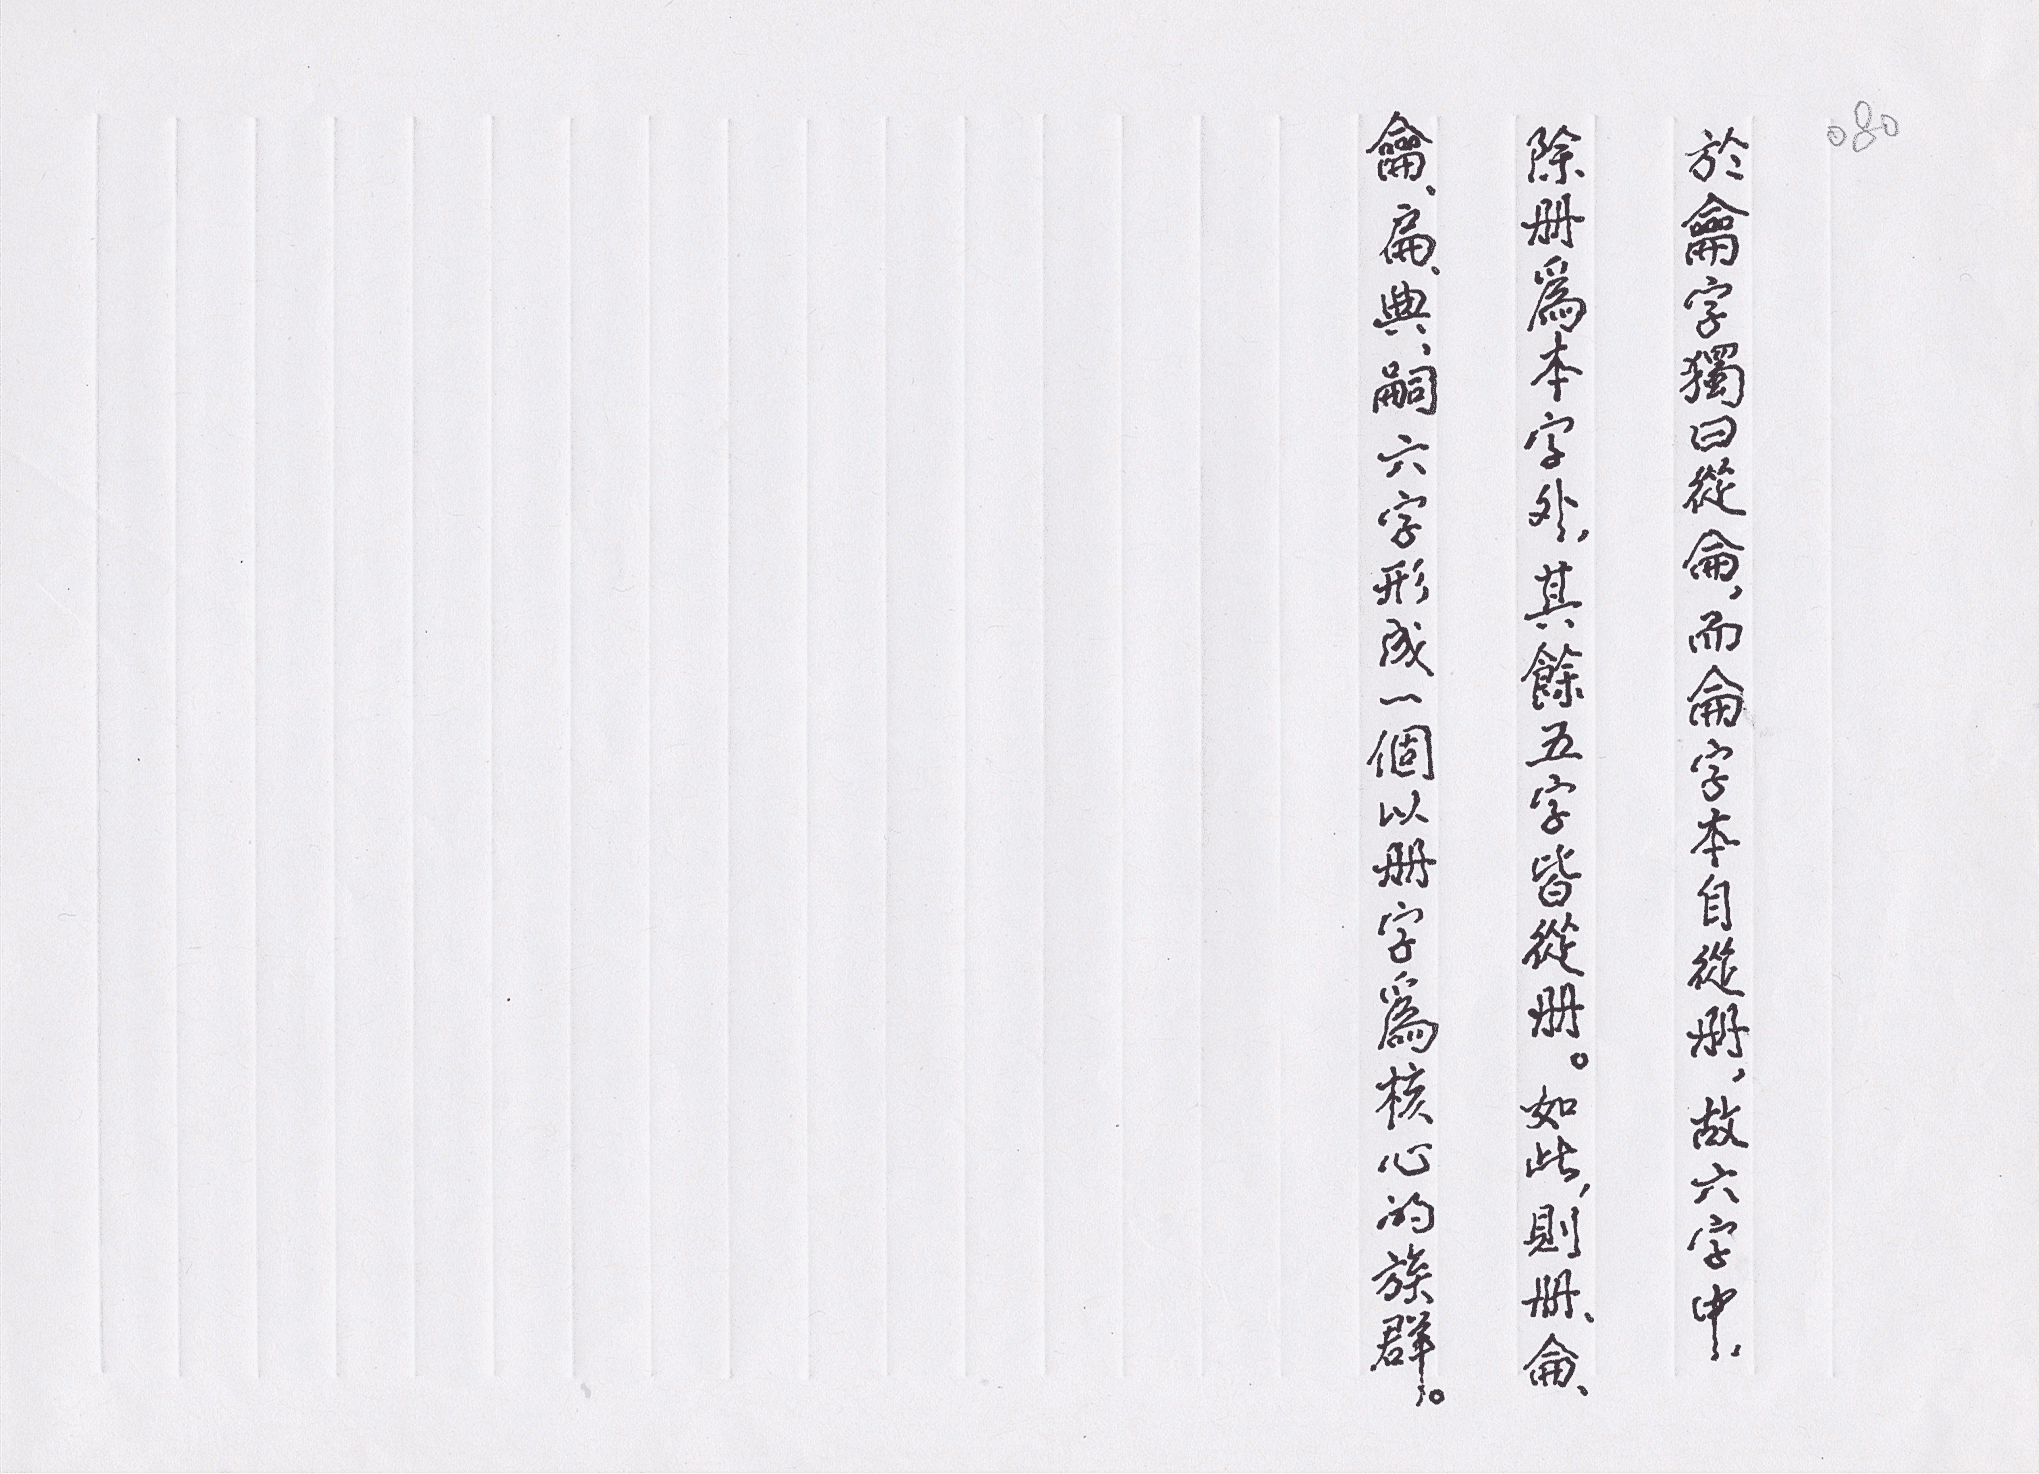 080
於龠字獨曰從侖，而侖字本自從册，故六字中，
除册爲本字外，其餘五字皆從册。如此，則册、侖、
龠、扁、典、嗣六字形成一個以册字爲核心的族群。